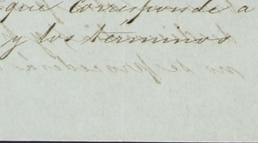 que corresponde a
y los términos